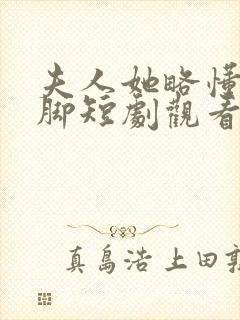 夫人她略懂
腳短劇觀看
真島浩 上田敦